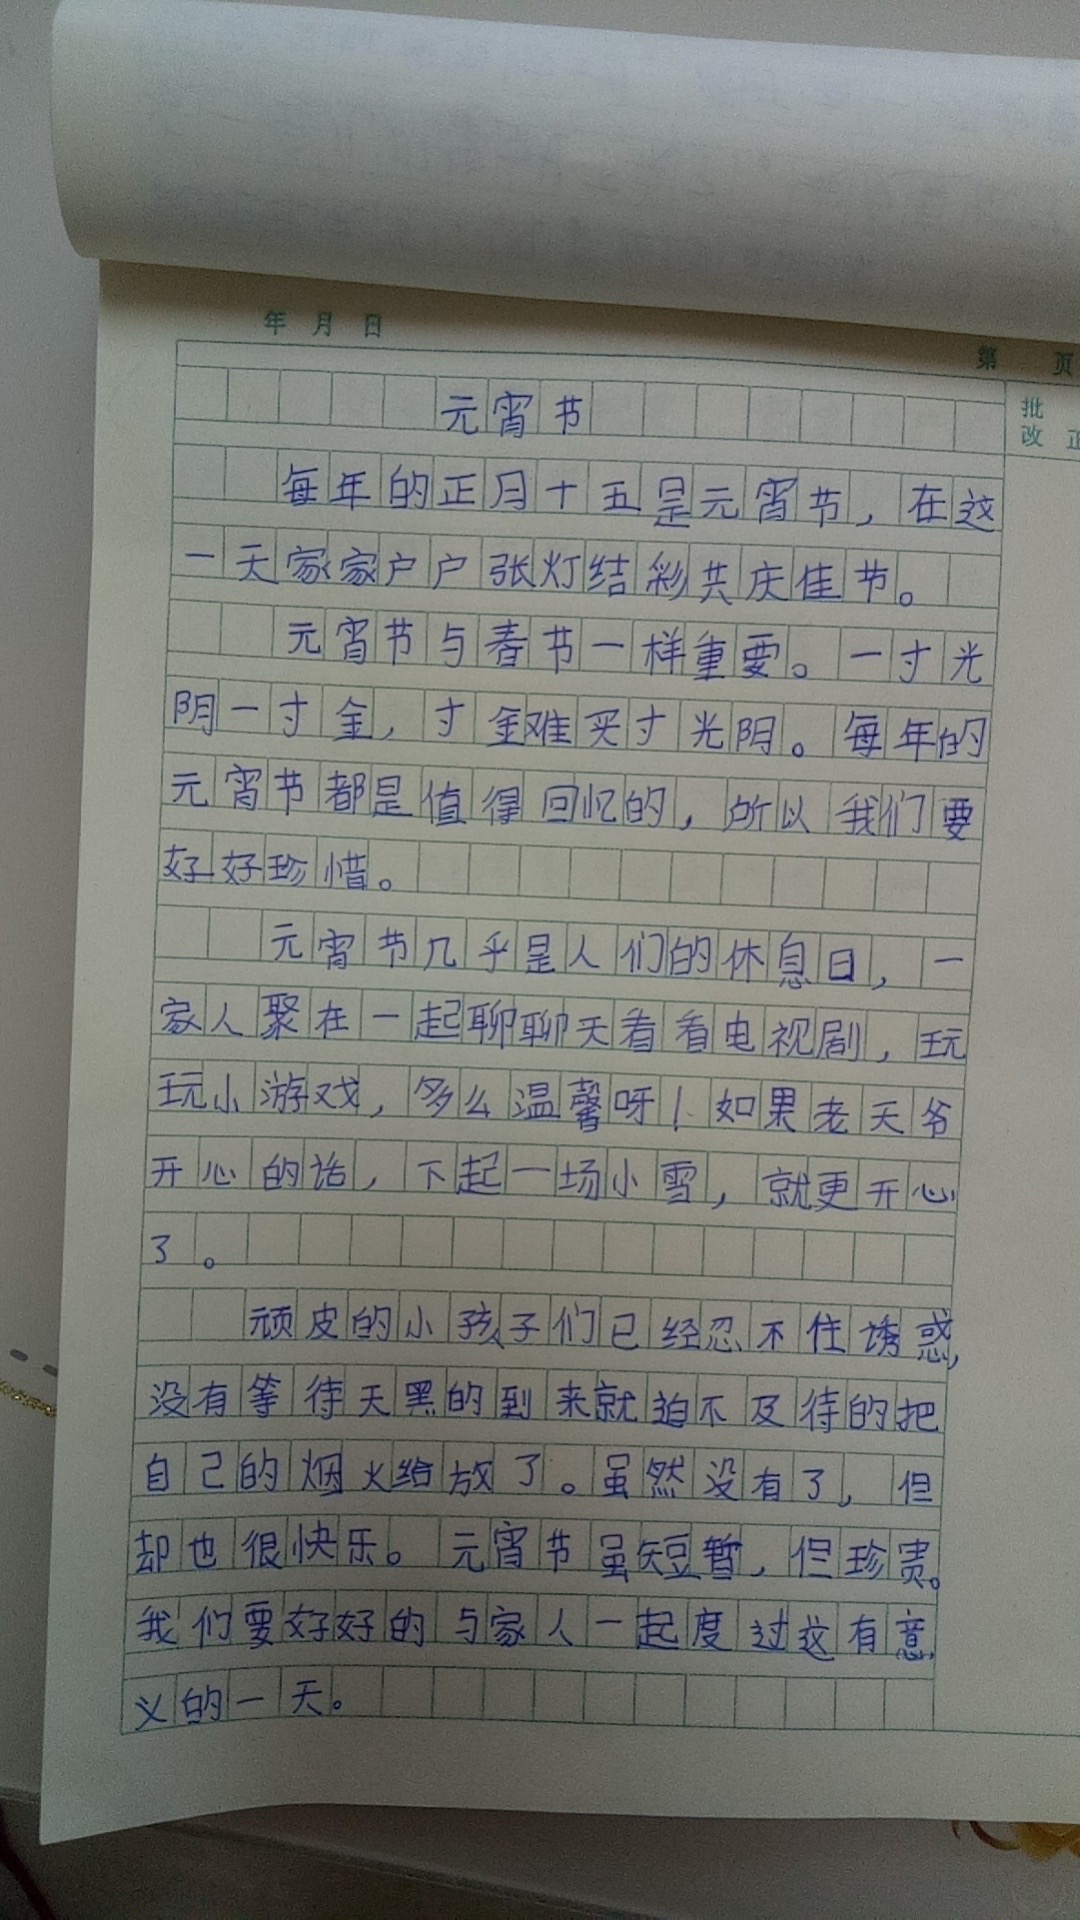 年 月 日
第 页
批
改 正
元宵节
每年的正月十五是元宵节，在这
一天家家户户张灯结彩共庆佳节。
元宵节与春节一样重要。一寸光
阴一寸金，寸金难买寸光阴。每年的
元宵节都是值得回忆的，所以我们要
好好珍惜。
元宵节几乎是人们的休息日，一
家人聚在一起聊聊天看看电视剧，玩
玩小游戏，多么温馨呀！如果老天爷
开心的话，下起一场小雪，就更开心
了。
顽皮的小孩子们已经忍不住诱惑，
没有等待天黑的到来就迫不及待的把
自己的烟火给放了。虽然没有了，但
却也很快乐。元宵节虽短暂，但珍贵。
我们要好好的与家人一起度过这有意
义的一天。